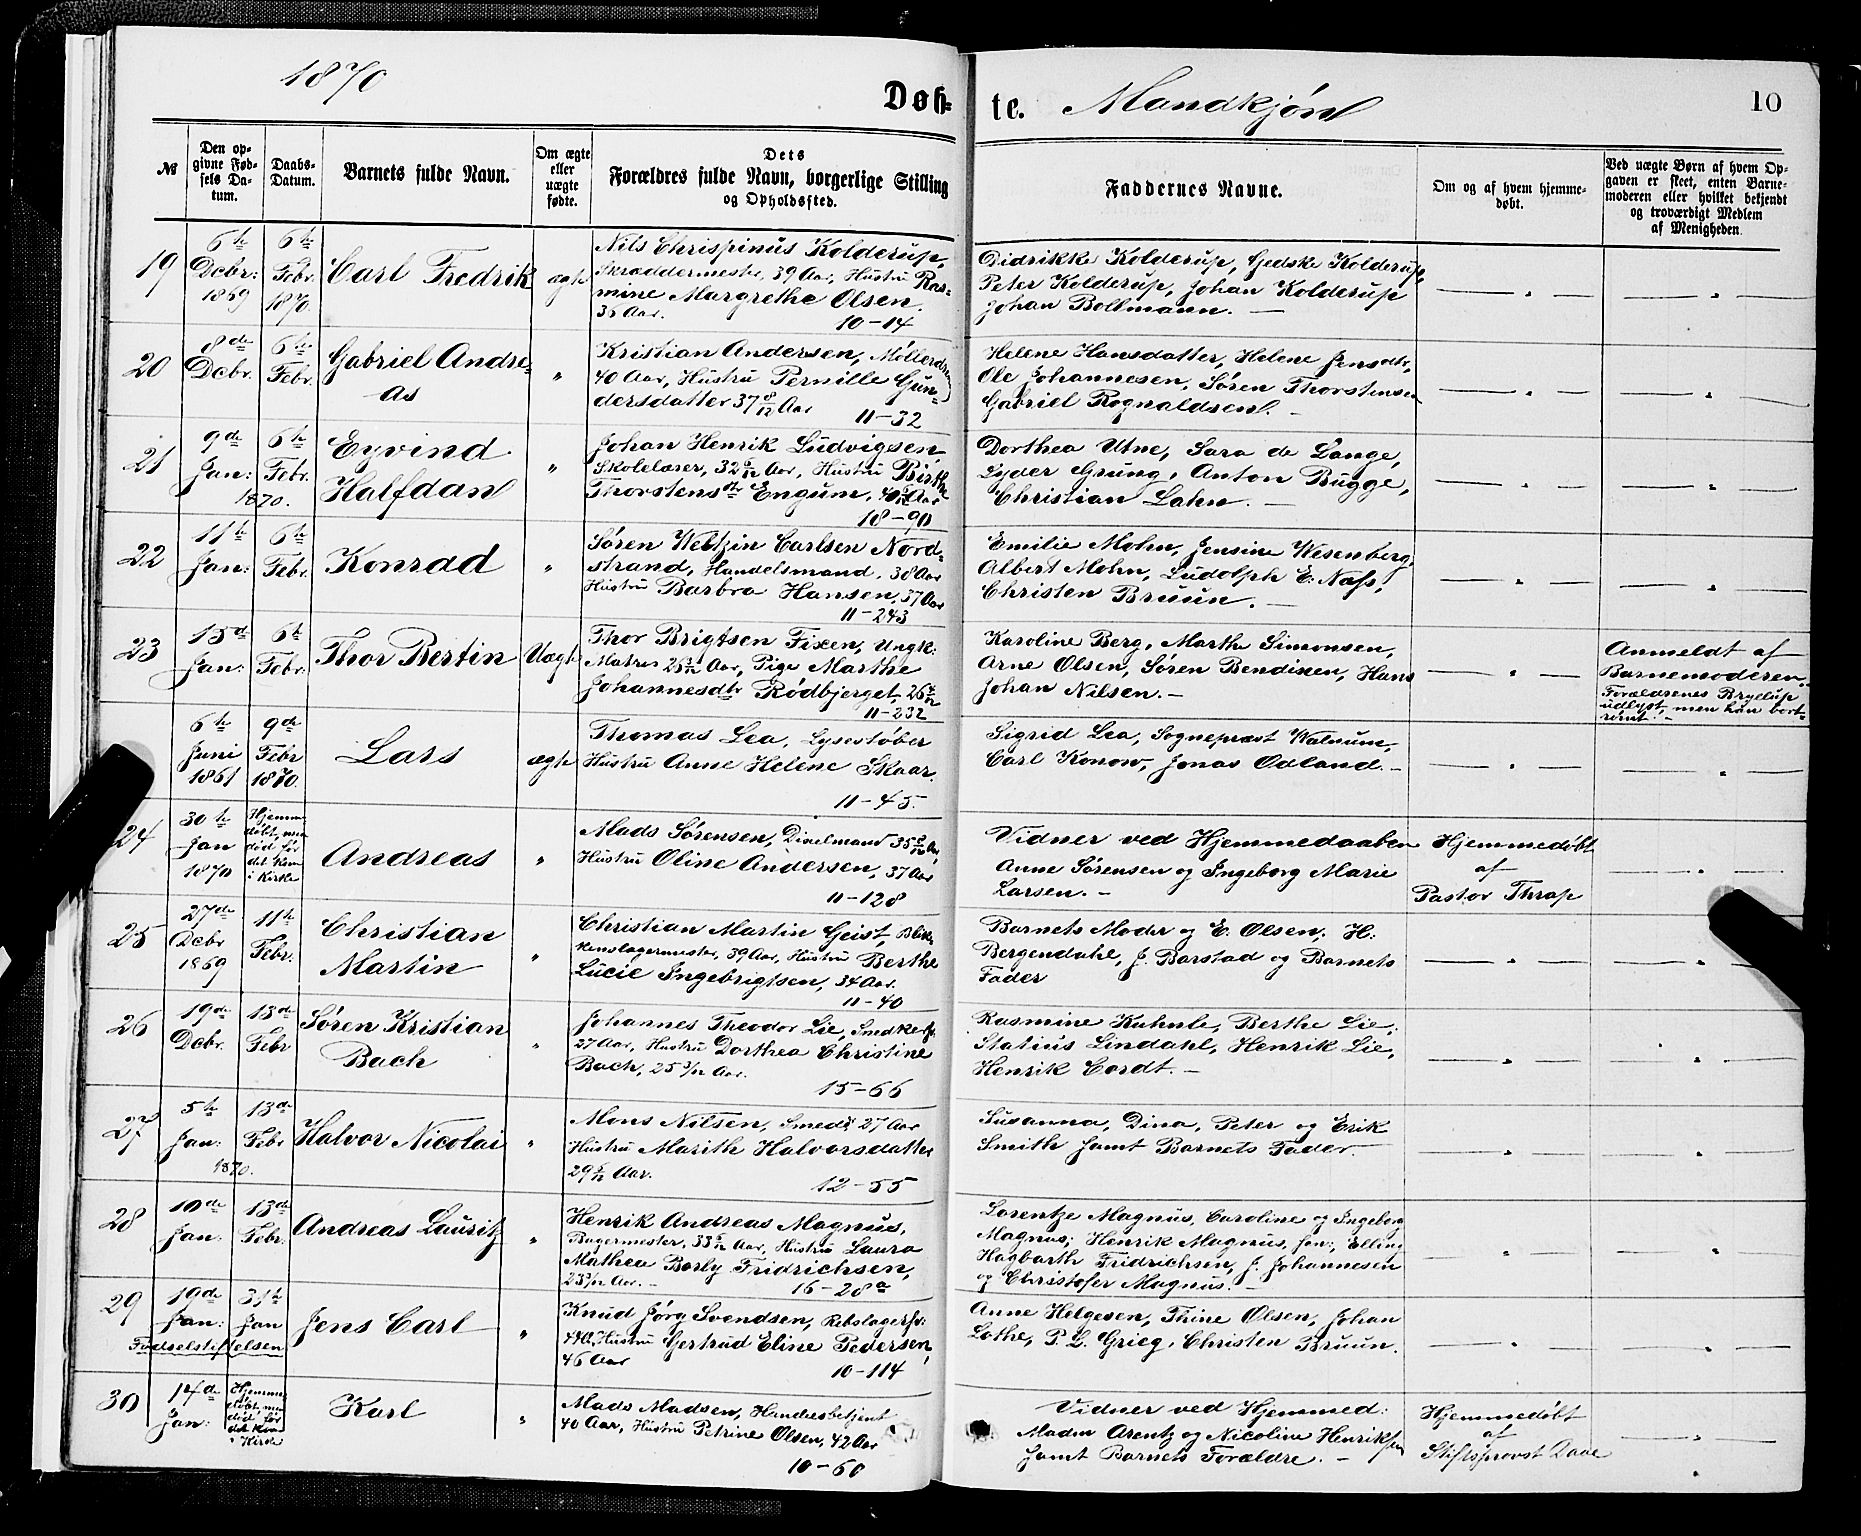 1870
Døb-
te. Mandkjøn
10
№
Den op-
givne Fød-
sels Da-
tum.
Daabs-
Datum.
Barnets fulde Navn.
Om ægte
eller
uægte
fødte.
Dets
Forældres fulde Navn, borgerlige Stilling
og Opholdssted.
Faddernes Navne.
Om og af hvem hjemme-
døbt.
Ved uægte Børn af hvem Op-
gaven er skeet, enten Barne-
moderen eller hvilket bekjendt
og troværdigt Medlem
af Menigheden.
19
6te
Dcbr:
1869
6te
Febr.
1870.
Carl Fredrik
ægte
Nils Chrispinus Kolderup,
Skræddermester, 39 Aar, Hustru Ras-
mine Margrethe Olsen.
35 Aar.
10-14
Didrikke Kolderup, Gedske Kolderup,
Peter Kolderup, Johan Kolderup
Johan Bollmann. —
20
8de
Dcbr.
6te
Febr.
Gabriel Andre-
as
"
Kristian Andersen, Møllerdreng
40 Aar, Hustru Pernille Gun-
dersdatter 37 8/12 Aar
11-32
Helene Hansdatter, Helene Jensdtr,
Ole Johannesen, Søren Thorstensen
Gabriel Rognaldsen. —
21
9de
Jan:
6te
Febr.
1870.
Eyvind
Halfdan
"
Johan Henrik Ludvigsen
Skolelærer, 32 Aar, Hustru Birthe
Thorstensdr Engum, Aar
18-90
Dorthea Utne, Sara de Lange,
Lyder Grung, Anton Bugge,
Christian Lahn. —
22
11te
Jan:
6te
Febr.
Konrad
"
Søren Weltzin Carlsen Nord-
strand, Handelsmand, 38 Aar
Hustru Barbra Hansen, 37 Aar
11-243
Emilie Mohn, Jensine Wesenberg,
Albert Mohn, Ludolph E. Næss,
Christen Bruun. —
23
15de
Jan:
6te
Febr.
Thor Bertin
Uægte
Thor Brigtsen Fixen, Ungk:
Matros 25 Aar, Pige Marthe
Johannesdtr Rødbjerget, 26
11-232
Karoline Berg, Marthe Simonsen,
Arne Olsen, Søren Bendixen, Hans
Johan Nilsen. —
Anmeldt af
Barnemoderen.
Forældrenes Bryllup
udlyst, men han bort-
rømt. —
6te
Juni
1861
9de
Febr
1870.
Lars
ægte
Thomas Lea, Lysestøber
Hustru Anne Helene Skaar.
11-45.
Sigrid Lea, Sognepræst Walnum,
Carl Konow, Jonas Odland. —
24
30te
Jan
1870
Hjemme-
døbt, men
død før
det kom
i Kirke
Andreas
"
Mads Sørensen, Dixelmand 35 Aar,
Hustru Oline Andersen, 37 Aar
11-128
Vidner ved Hjemmedaaben
Anne Sørensen og Ingeborg Marie
Larsen. —
Hjemmedøbt
af
Pastor Thrap
25
27de
Dcbr
1869
11te
Febr.
Christian
Martin
"
Christian Martin Geist, Blik-
kenslagermester, 39 Aar, Hustru Berthe
Lucie Ingebrigtsen, 34 Aar.
11-40
Barnets Moder og E. Olsen, H:
Bergendahl, J. Barstad og Barnets
Fader
26
19de
Dcbr.
13de
Febr
Søren Kristian
Bach
"
Johannes Theodor Lie, Snedkersv.
27 Aar, Hustru Dorthea Christine
Bach, 25 3/12 Aar.
15-66
Rasmine Kuhnle, Berthe Lie,
Statius Lindahl, Henrik Lie,
Henrik Cordt. —
27
5te
Jan:
13de
Febr
1870.
Halvor Nicolai
"
Mons Nilsen, Smed, 27 Aar
Hustru Marith Halvorsdatter
29 Aar.
12-55
Susanna, Dina, Peter og Erik
Smith samt Barnets Fader.
28
10de
Jan:
13de
Febr.
Andreas Lauritz
"
Henrik Andreas Magnus,
Bagermester, 33 Aar, Hustru Laura
Mathea Borly Fridrichsen,
23 Aar. —
16-28a
Lorentze Magnus, Caroline og Ingeborg
Magnus, Henrik Magnus, sen:, Elling
Hagbarth Fridrichsen, J. Johannesen
og Christofer Magnus. —
29
19de
Jan:
31te
Jan
Fødselstiftelsen
Jens Carl
"
Knud Jørg Svendsen, Rebslagersv:
44 Aar, Hustru Gertrud Eline Pedersen,
46 Aar
10-114
Anne Helgesen, Thine Olsen, Johan
Lothe, P. L. Grieg, Christen Bruun.
30
14de
Jan:
Hjemme-
døbt, men
død før
det kom
i Kirke
Karl
"
Mads Madsen, Handelsbetjent
40 Aar, Hustru Petrine Olsen, 42 Aar
10-60
Vidner ved Hjemmed:
Madm Arentz og Nicoline Henriksen
samt Barnets Forældre. —
Hjemmedøbt
af
Stiftsprovst Daae